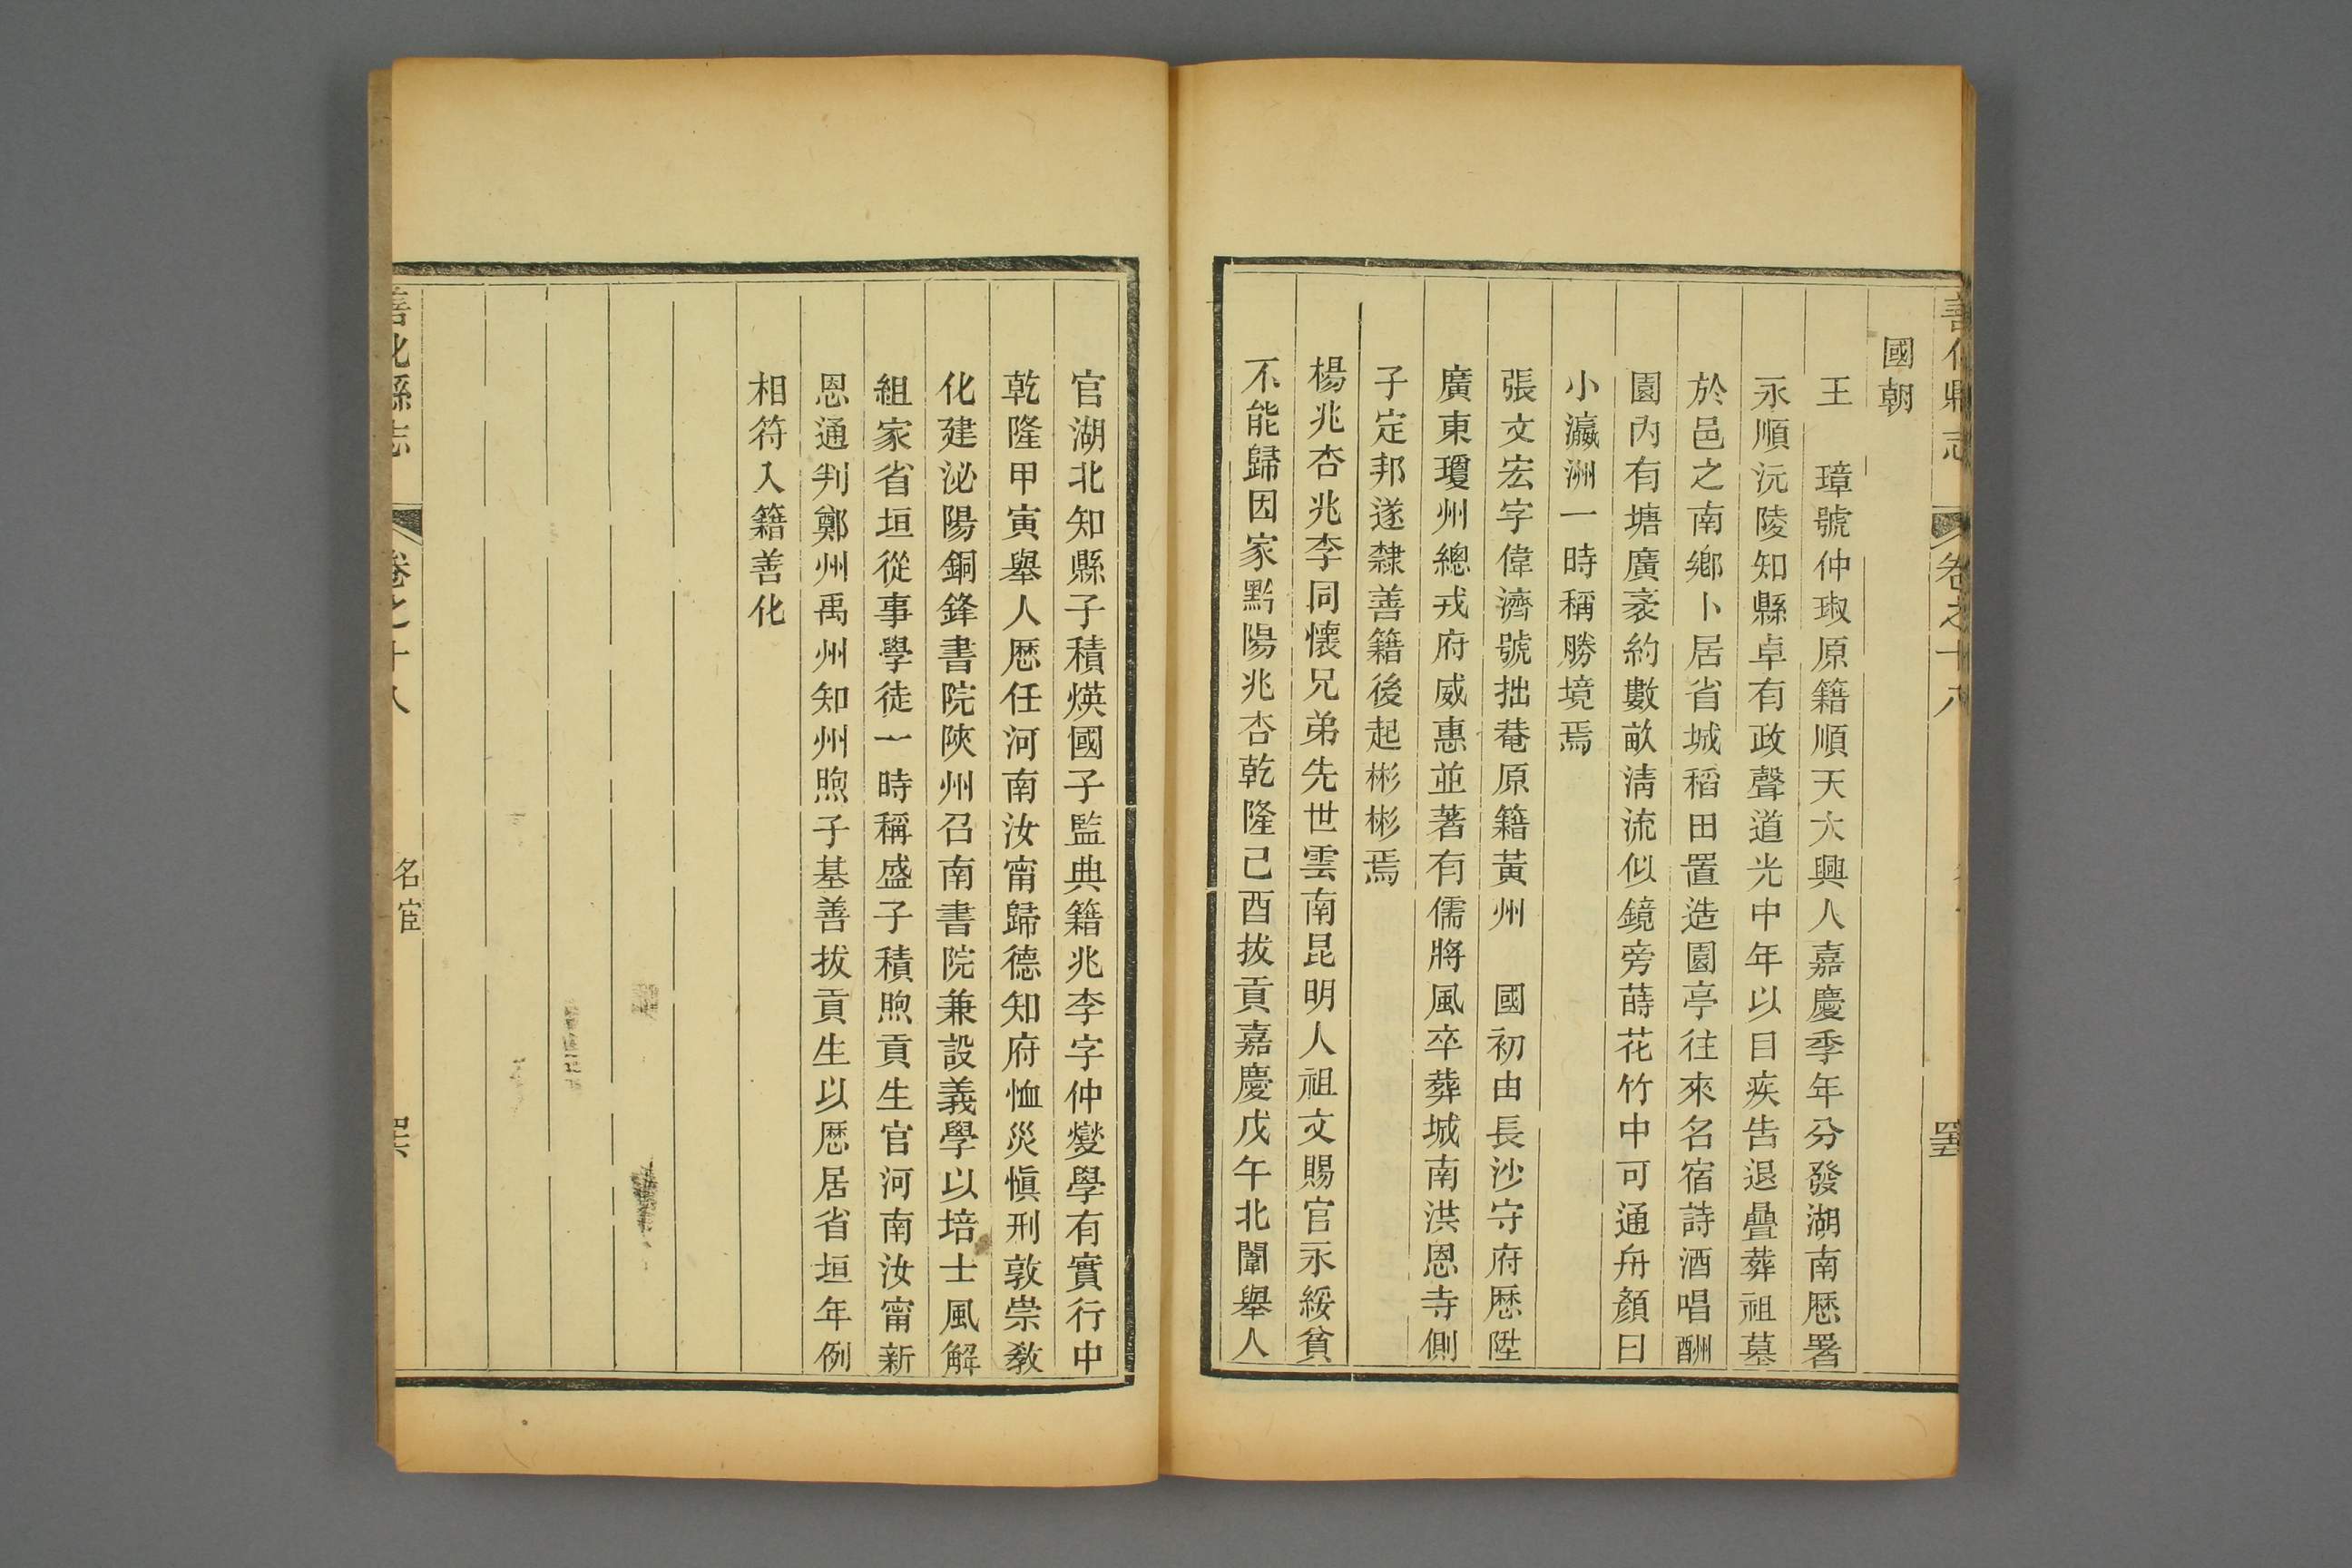 善化縣志
卷之十八
國朝
王　璋號仲琡原籍順天大興人嘉慶季年分發湖南歷署
永順沅陵知縣卓有政聲道光中年以目疾告退疊葬祖墓
於邑之南鄉卜居省城稻田置造園亭往來名宿詩酒唱酬
園內有塘廣袤約數畝淸流似鏡旁蒔花竹中可通舟顏曰
小瀛洲一時稱勝境焉
張文宏字偉濟號拙菴原籍黃州　國初由長沙守府歷陞
廣東瓊州總戎府威惠並著有儒將風卒葬城南洪恩寺側
子定邦遂隸善籍後起彬彬焉
楊兆杏兆李同懷兄弟先世雲南昆明人祖文賜官永綏貧
不能歸因家黔陽兆杏乾隆己酉拔貢嘉慶戊午北闈舉人
官湖北知縣子積煐國子監典籍兆李字仲燮學有實行中
乾隆甲寅舉人歷任河南汝甯歸德知府恤災愼刑敦崇敎
化建泌陽銅鋒書院陝州召南書院兼設義學以培士風解
組家省垣從事學徒一時稱盛子積煦貢生官河南汝甯新
恩通判鄭州禹州知州煦子基善拔貢生以歷居省垣年例
相符入籍善化
善化縣志
卷之十八
名宦